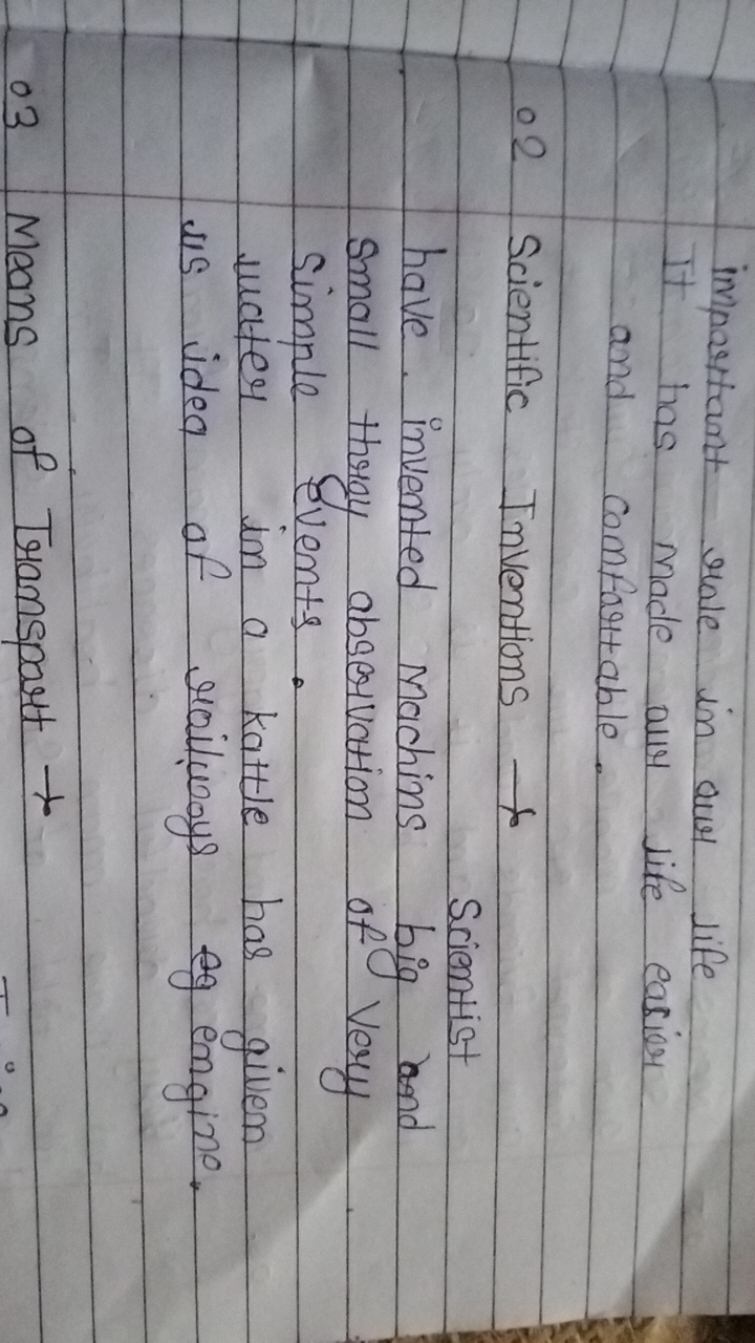 important role in our life
It has made our life easier
and comfortable.
02 Scientific Inventions →
Scientist
have invented Machins big and
small throy observation of very
simple events.
water in a kattle has given
us idea of railways engine.
03 Means of Transport →